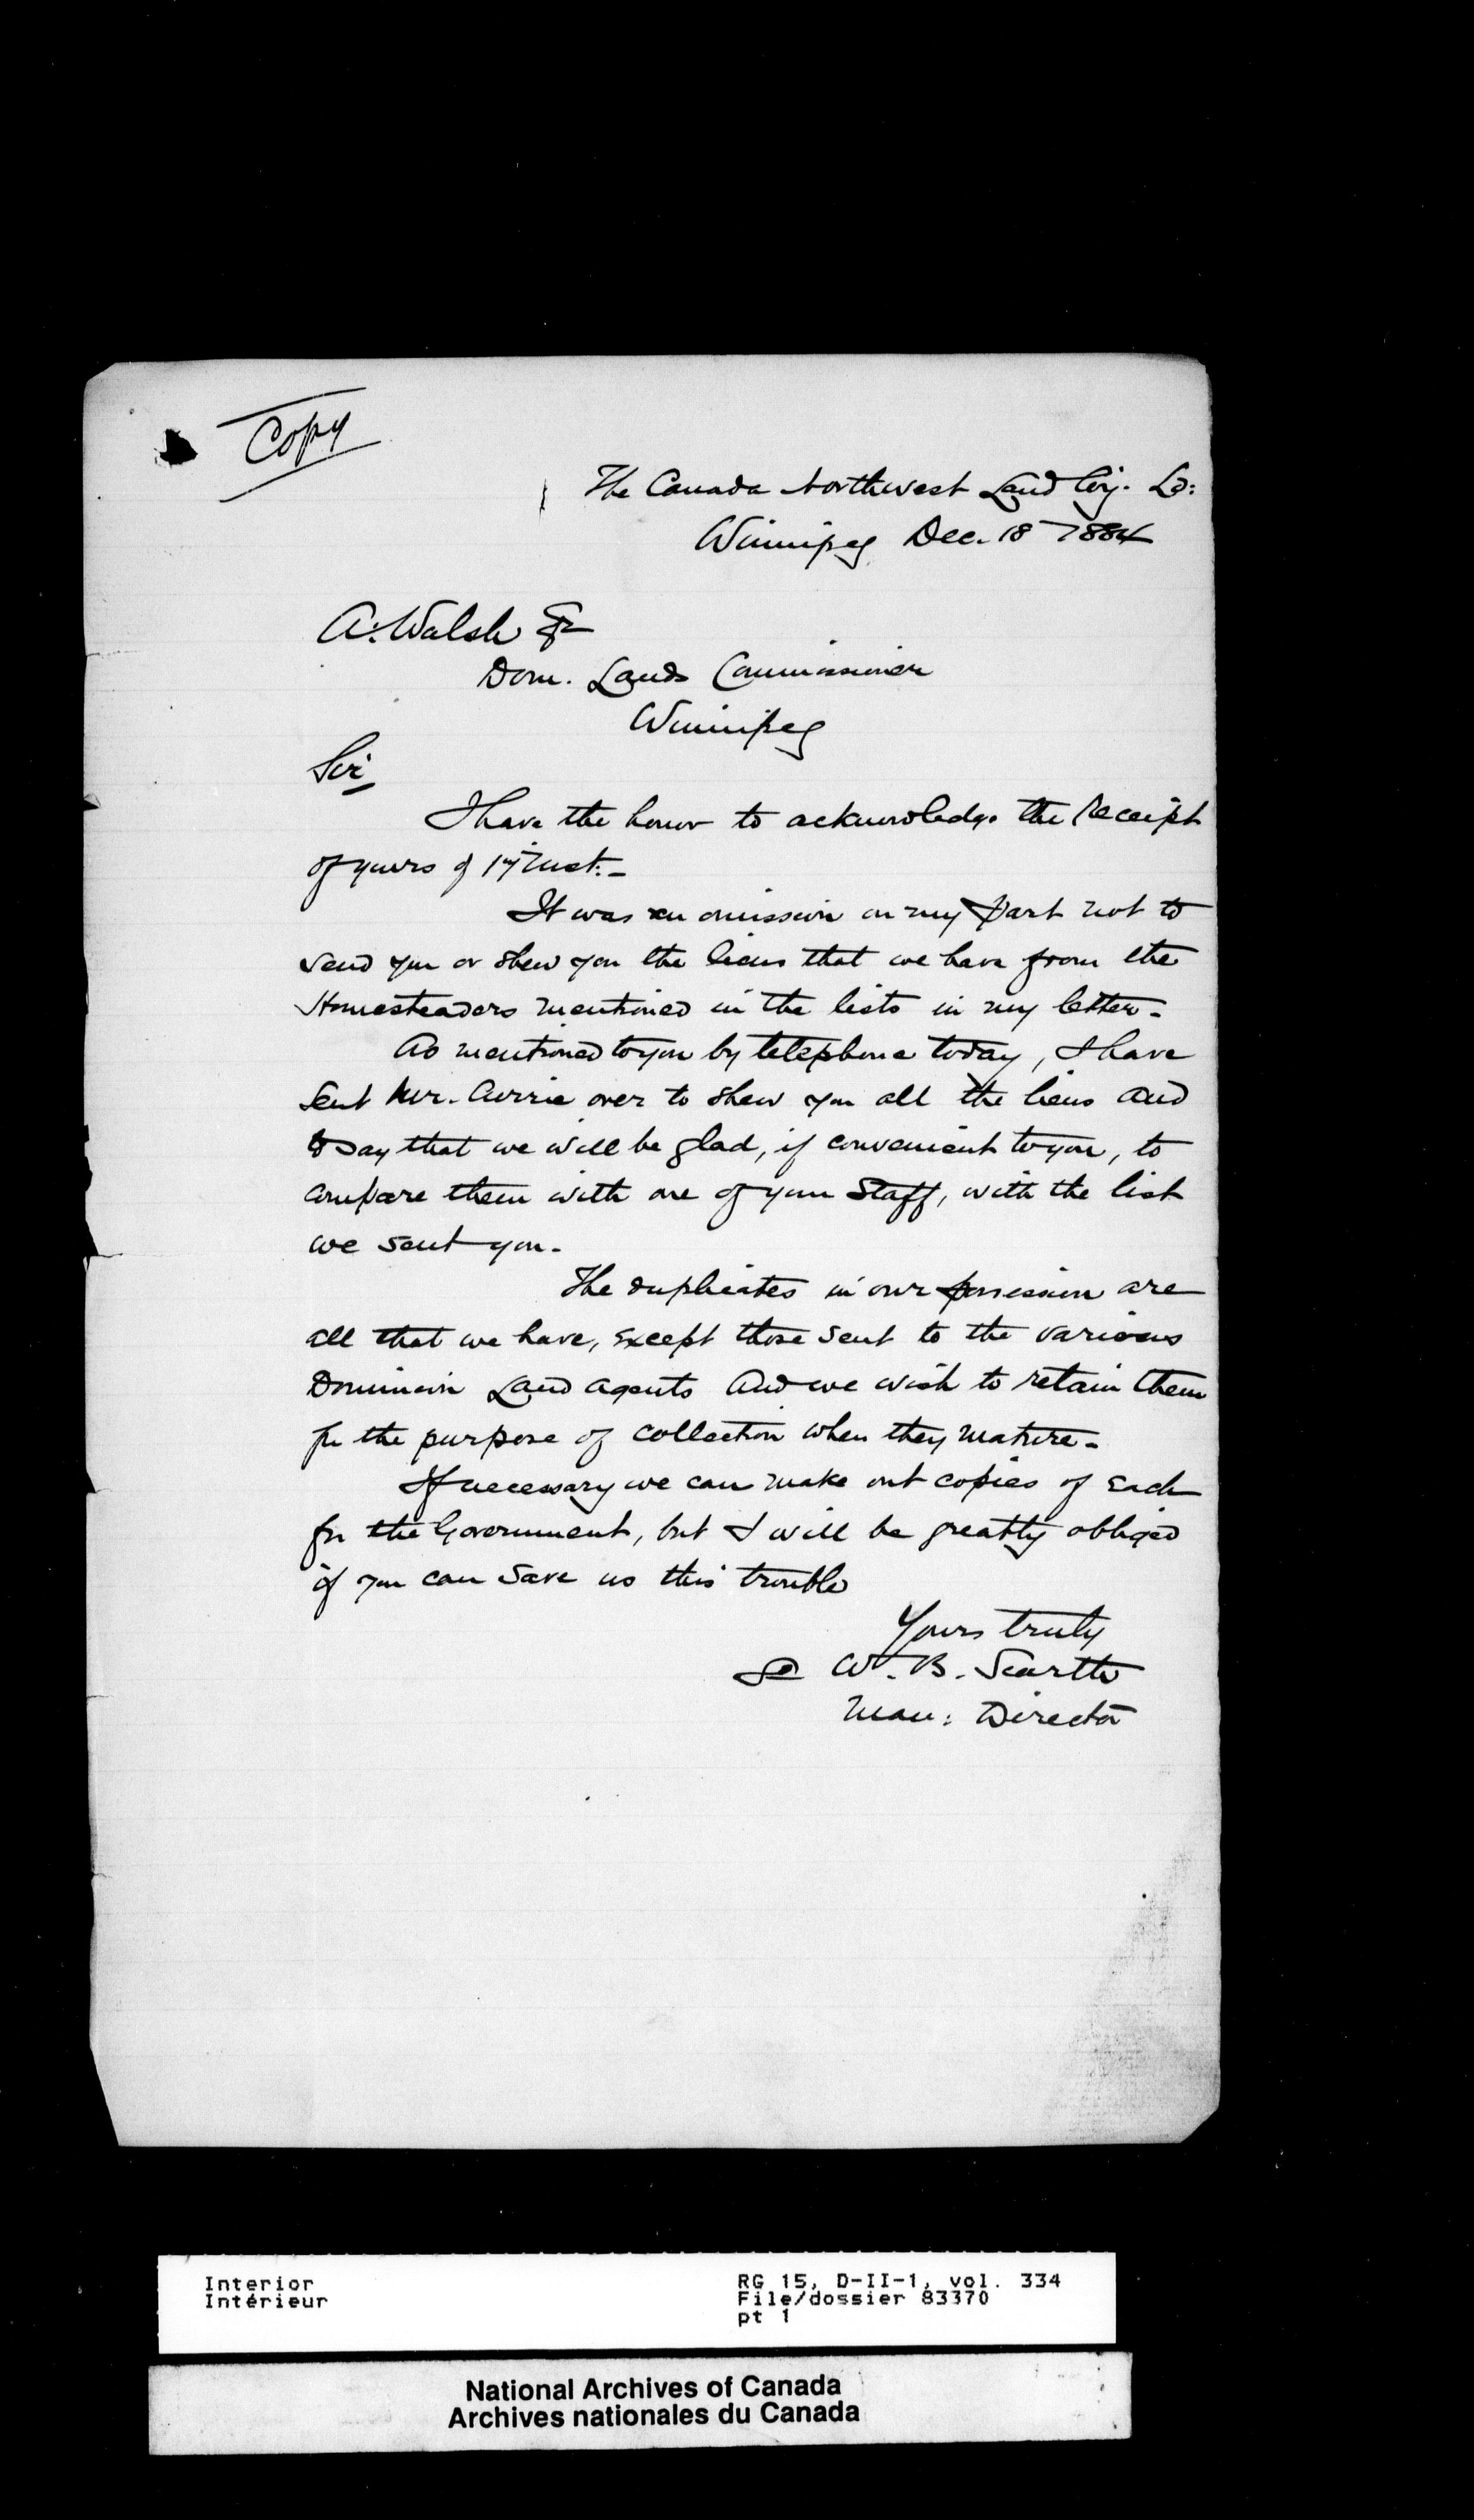 Copy
The Canada Northwest Land Coy. Ld:
Winnipeg Dec. 18 1884
A. Walsh Esq
Dom. Lands Commissioner
Winnipeg
Sir,
I have the honor to acknowledge the receipt
of yours of 17 Inst:-
It was an omission on my part not to
send you or shew you the liens that we have from the
Homesteaders mentioned in the lists in my letter-
As mentioned to you by telephone today, I have
sent Mr. Currie over to shew you all the liens and
to say that we will be glad, if convenient to you, to
compare them with one of your Staff, with the list
we sent you-
The duplicates in our possession are
all that we have, except those sent to the various
Dominion Land Agents and we wish to retain them
for the purpose of collection when they mature-
If necessary we can make out copies of each
for the Government, but I will be greatly obliged
if you can save us this trouble
Yours truly
W. B. Scarth
Man: Director
Interior
Intérieur
RG 15, D-II-1, vol. 334
File/dossier 83370
pt 1
National Archives of Canada
Archives nationales du Canada